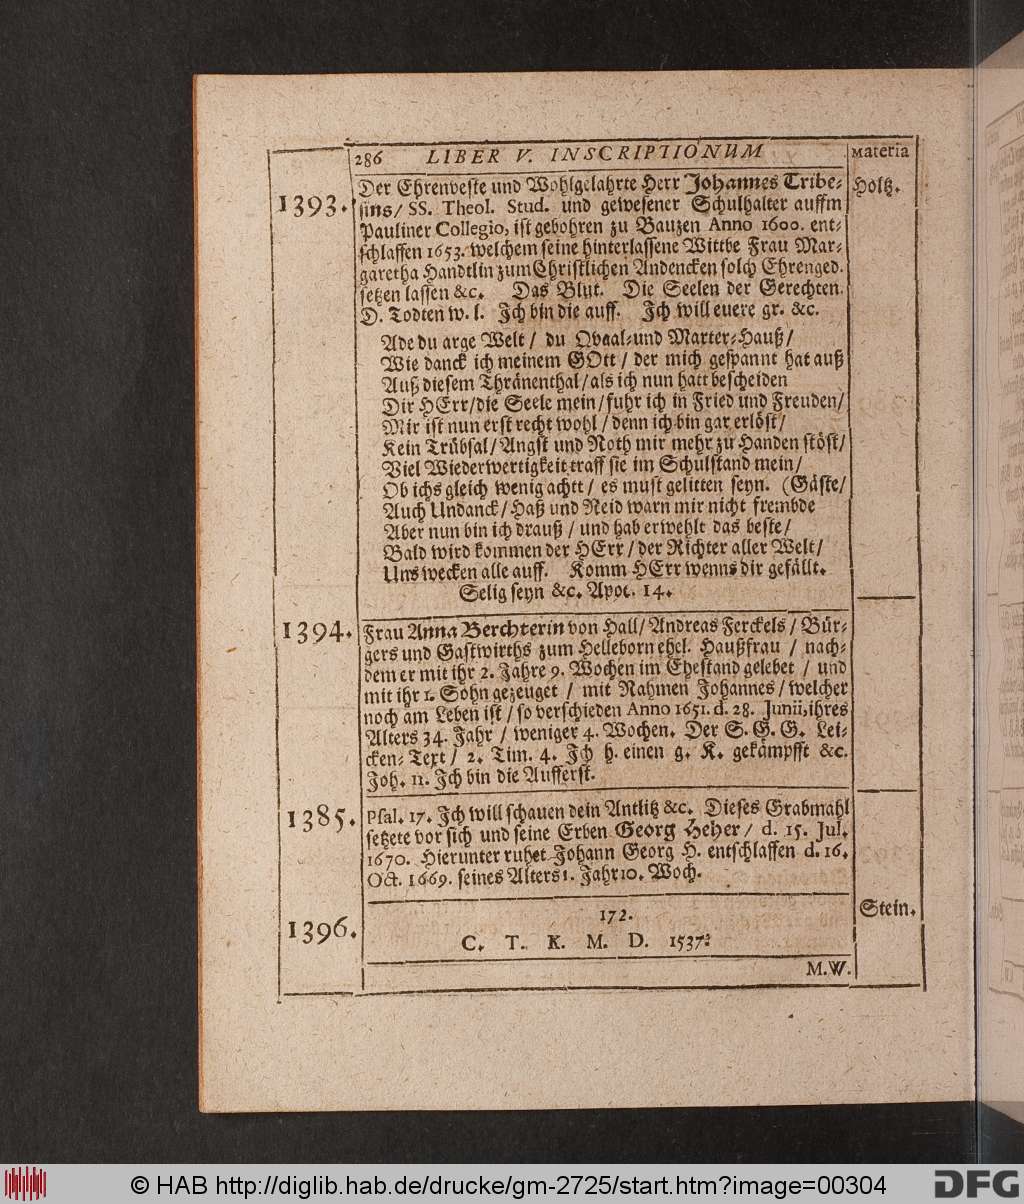 286 LIBER V. INSCRIPTIONUM Materia
1393. Der Ehrenveste und Wohlgelahrte Herr Johannes Tribe- Holtz.
sius/ SS. Theol. Stud. und gewesener Schulhalter auffm
Pauliner Collegio, ist gebohren zu Bauzen Anno 1600. ent-
schlaffen 1653. welchem seine hinterlassene Wittbe Frau Mar-
garetha Handtlin zum Christlichen Andencken solch Ehrenged.
setzen lassen &c. Das Blut. Die Seelen der Gerechten.
D. Todten w. l. Ich bin die auff. Ich will euere gr. &c.
Ade du arge Welt / du Qvaal-und Marter-Hauß/
Wie danck ich meinem GOtt / der mich gespannt hat auß
Auß diesem Thränenthal/ als ich nun hatt bescheiden
Dir HErr/die Seele mein/fuhr ich in Fried und Freuden/
Mir ist nun erst recht wohl / denn ich bin gar erlöst/
Kein Trübsal/ Angst und Noth mir mehr zu Handen stöst/
Viel Wiederwertigkeit traff sie im Schulstand mein/
Ob ichs gleich wenig achtt / es must gelitten seyn. (Gäste/
Auch Undanck/ Haß und Neid warn mir nicht frembde
Aber nun bin ich drauß / und hab erwehlt das beste/
Bald wird kommen der HErr / der Richter aller Welt/
Uns wecken alle auff. Komm HErr wenns dir gefällt.
Selig seyn &c. Apoc. 14.
1394. Frau Anna Berchterin von Hall/ Andreas Ferckels / Bür-
gers und Gastwirths zum Helleborn ehel. Haußfrau / nach-
dem er mit ihr 2. Jahre 9. Wochen im Ehestand gelebet / und
mit ihr 1. Sohn gezeuget / mit Nahmen Johannes / welcher
noch am Leben ist / so verschieden Anno 1651. d. 28. Junii, ihres
Alters 34. Jahr / weniger 4. Wochen. Der S. G. G. Lei-
cken-Text / 2. Tim. 4. Ich h. einen g. K. gekämpfft &c.
Joh. 11. Ich bin die Aufferst.
1385. Psal. 17. Ich will schauen dein Antlitz &c. Dieses Grabmahl
setzete vor sich und seine Erben Georg Heher / d. 15. Jul.
1670. Hierunter ruhet Johann Georg H. entschlaffen d. 16.
Oct. 1669. seines Alters 1. Jahr 10. Woch.
1396. 172. Stein.
C. T. K. M. D. 1537.
M.W.
© HAB http://diglib.hab.de/drucke/gm-2725/start.htm?image=00304
DFG